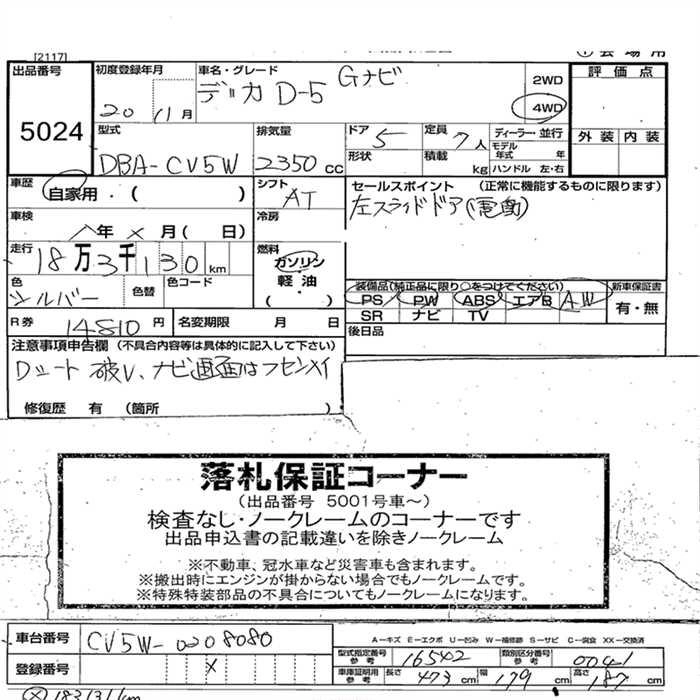 [2117]
出品番号
5024
初度登録年月
20 11月
車名・グレード
デリカ D-5 Gナビ
2WD
4WD
評価点
外装 内装
型式
DBA-CV5W
排気量
2350 cc
ドア
5
定員
7人
形状
積載 kg
ディーラー・並行
モデル年式 年
ハンドル 左・右
車歴
自家用・( )
シフト
AT
セールスポイント (正常に機能するものに限ります)
左スライドドア(電動)
車検
年 × 月( 日)
冷房
走行
18万3千130km
燃料
ガソリン
軽油
( )
色
シルバー
色替
色コード
装備品(純正品に限り○をつけてください)
PS PW ABS エアB AW
SR ナビ TV
新車保証書
有・無
R券 14810円
名変期限 月 日
後日品
注意事項申告欄 (不具合内容等は具体的に記入して下さい)
Dシート破レ、ナビ画面はフセンメイ
修復歴 有 (箇所 )
落札保証コーナー
(出品番号 5001号車~)
検査なし・ノークレームのコーナーです
出品申込書の記載違いを除きノークレーム
※不動車、冠水車など災害車も含まれます。
※搬出時にエンジンが掛からない場合でもノークレームです。
※特殊特装部品の不具合についてもノークレームになります。
車台番号
CV5W-0208080
登録番号
×
A-キズ E-エクボ U-凹み W-補修跡 S-サビ C-腐食 XX-交換済
型式指定番号 参考 16542
類別区分番号 参考 0041
車庫証明用 参考 長さ 473 cm 幅 179 cm 高さ 187 cm
183131km